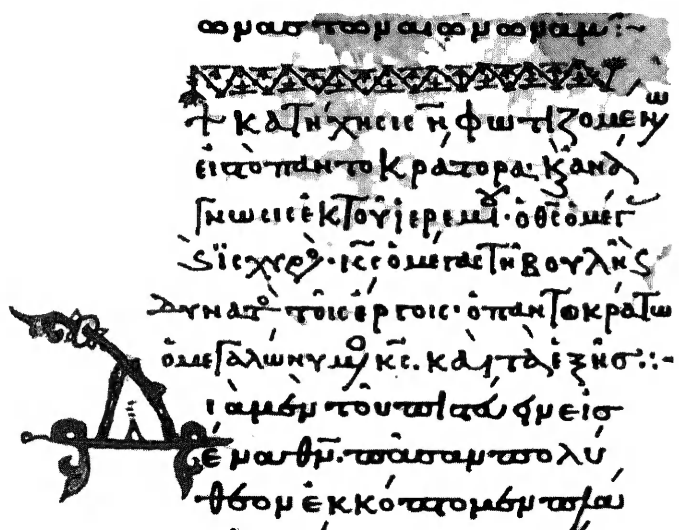 ωνας των αιωνων αμην :~
+ κατήχησις η̅ φωτιζομένω
εἰς τὸ παντοκράτορα· κ(αὶ) ἀνά
γνωσις ἐκ τοῦ ἱερεμί(ου)· ὁ θ̅ς̅ ὁ μέγ(ας)
κ(αὶ) ἰσχυρὸ(ς)· κ̅ς̅ ὁ μέγας τῆ βουλῆ κ(αὶ)
δυνατὸ(ς) τοῖς ἔργοις· ὁ παντοκράτω(ρ)
ὁ μεγαλώνυμο(ς) κ̅ς̅. καὶ τὰ ἑξῆς :~
Διὰ μὲν τοῦ πιστεύειν εἰς
ἕνα θ̅ν̅. πᾶσαν πολύ
θεον ἐκκόπτομεν πλά